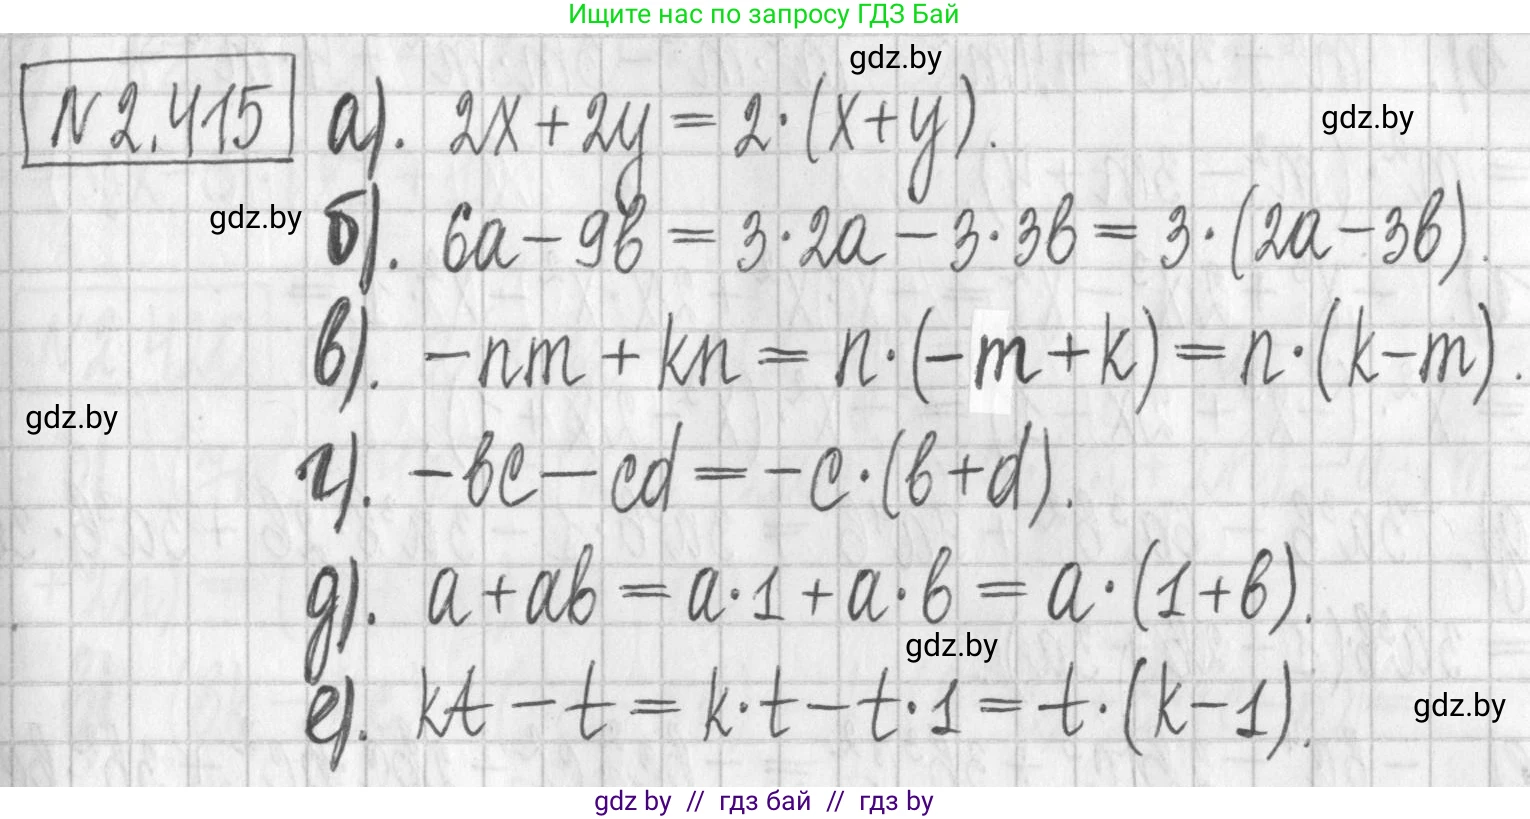 Ищите нас по запросу ГДЗ Бай
gdz.by
№2.415 а). 2x + 2y = 2·(x+y).
gdz.by
gdz.by
б). 6a − 9b = 3·2a − 3·3b = 3·(2a−3b).
в). −nm + kn = n·(−m+k) = n·(k−m).
gdz.by
г). −bc − cd = −c·(b+d).
д). a + ab = a·1 + a·b = a·(1+b).
gdz.by
е). kt − t = k·t − t·1 = t·(k−1).
gdz.by
gdz by // гдз бай // гдз by